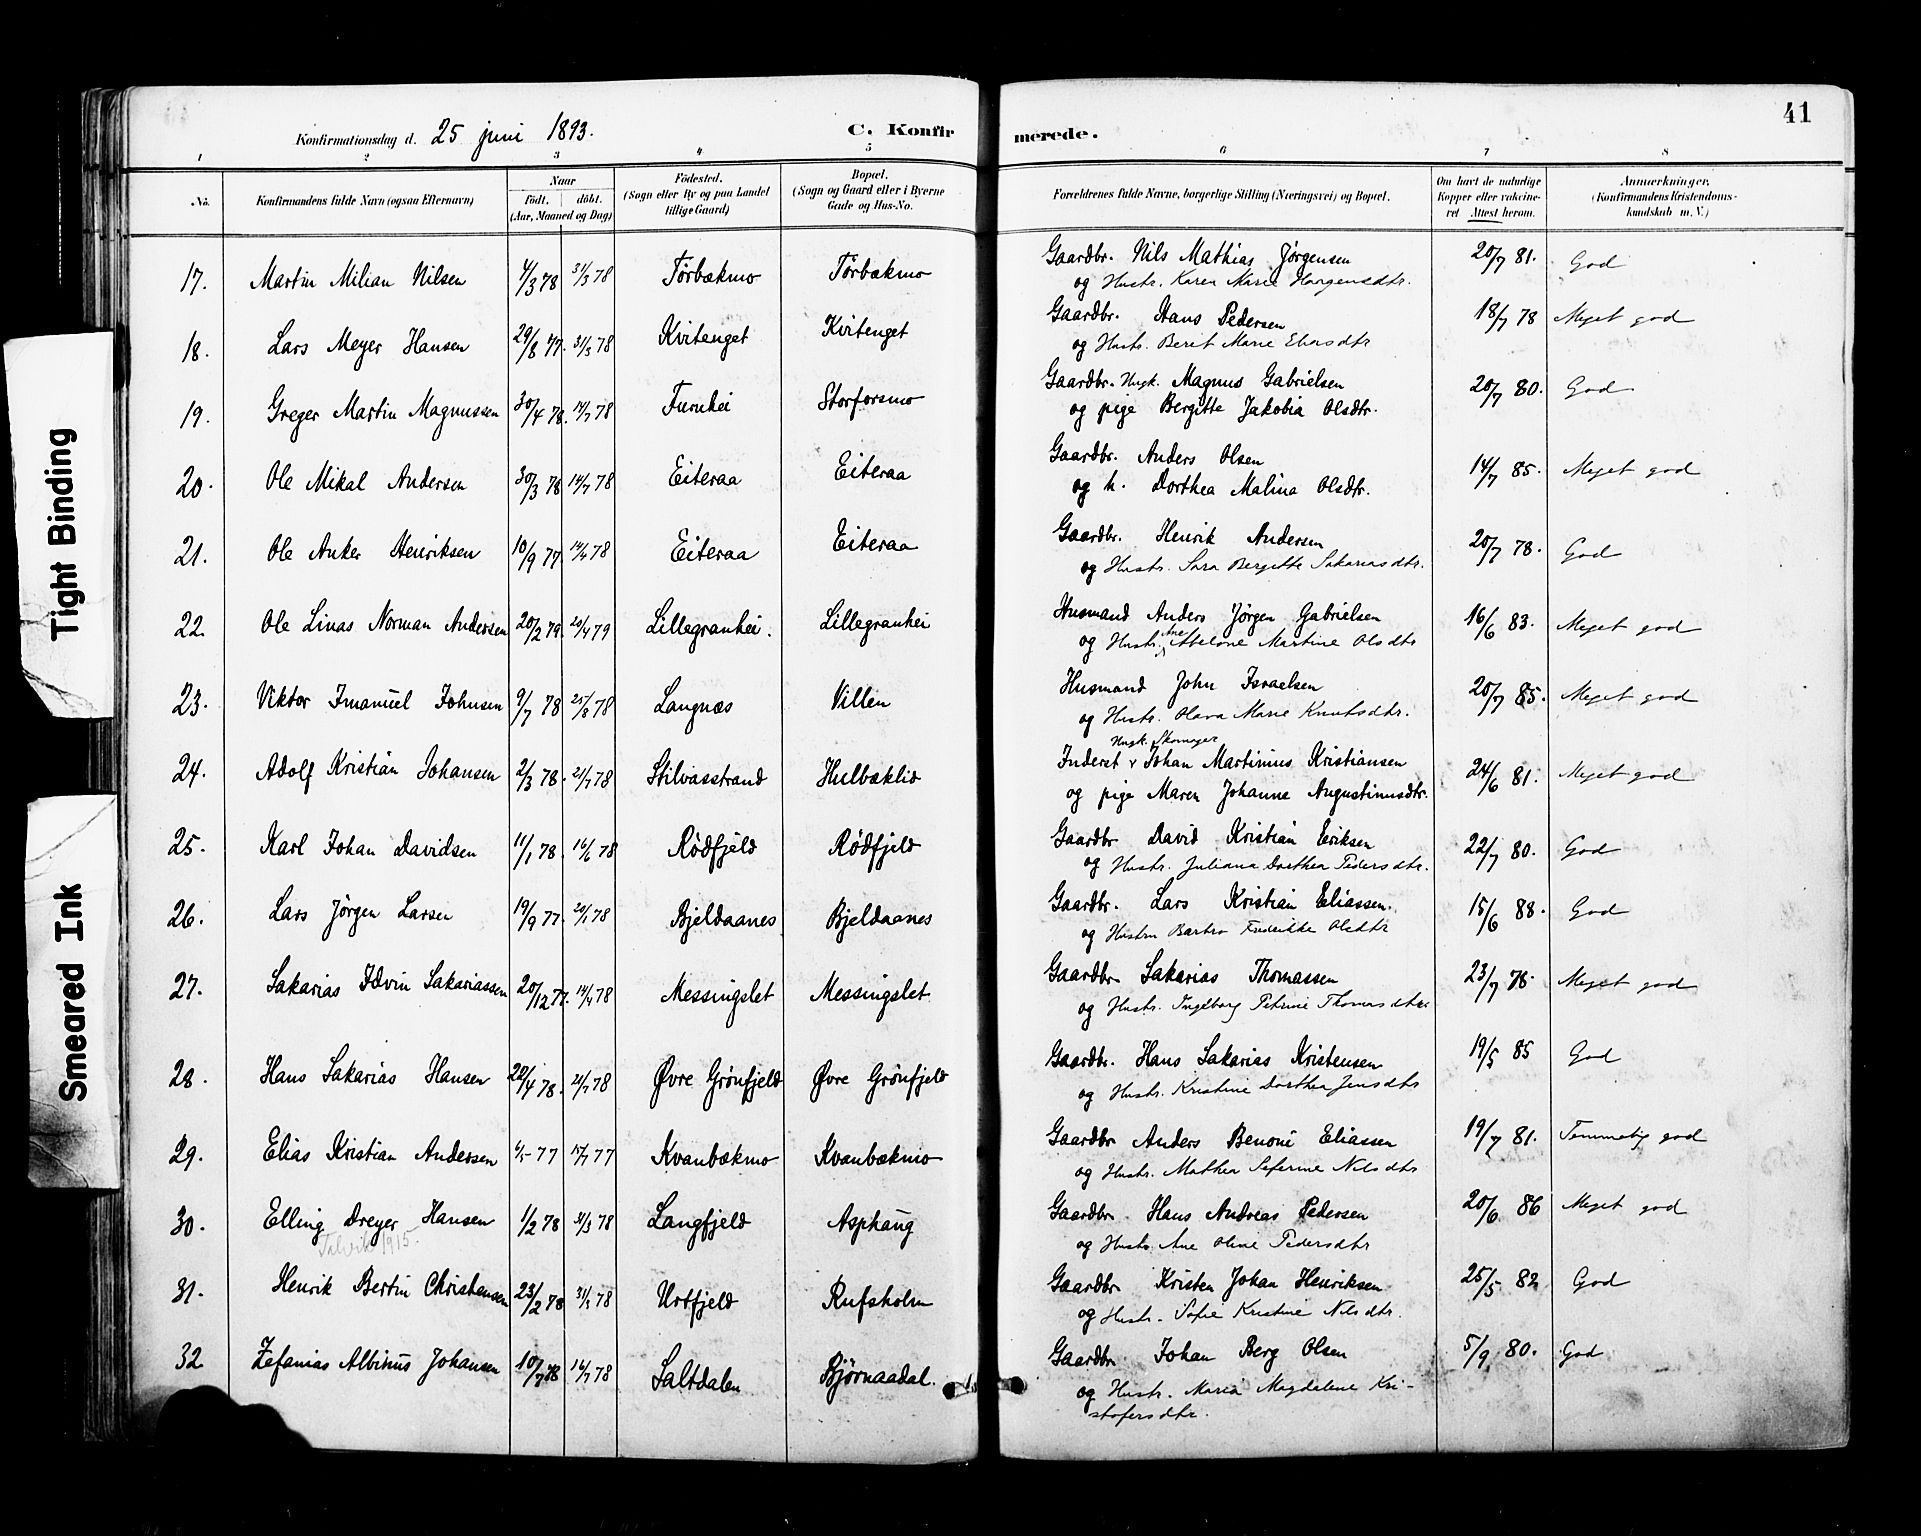 41
Konfirmationsdag d. 25 juni 1893. C. Konfirmerede.
1 2 3 4 5 6 7 8
No. Konfirmandens fulde Navn (ogsaa Efternavn) Naar Født. døbt. (Aar, Maaned og Dag) Fødested. (Sogn eller By og paa Landet tillige Gaard) Bopæl. (Sogn og Gaard eller i Byerne Gade og Hus-No. Forældrenes fulde Navne, borgerlige Stilling (Næringsvei) og Bopæl. Om havt de naturlige Kopper eller vakcineret Attest herom. Anmærkninger. (Konfirmandens Kristendomskundskab m. V.)
17. Martin Milian Nilsen 4/3 78 31/3 78 Tørbækmo Tørbækmo Gaardbr. Nils Mathias Jørgensen 20/7 81. God
og Hustr. Karen Marie Hargensdtr.
18. Lars Meyer Hansen 29/8 77. 31/3 78 Kvitenget Kvitenget Gaardbr. Hans Pedersen 18/7 78 Meget god
og Hustr. Beret Marie Eliasdtr
19. Greger Martin Magnussen 30/4 78. 14/7 78 Furuhei Storforsmo Gaardbr. Ungk. Magnus Gabrielsen 20/7 80. God
og pige Bergitte Jakobia Olsdtr.
20. Ole Mikal Andersen 30/3 78 14/7 78 Eiteraa Eiteraa Gaardbr. Anders Olsen 14/7 85. Meget god
og h. Dorthea Malina Olsdtr.
21. Ole Anker Henriksen 10/9 77. 14/4 78 Eiteraa Eiteraa Gaardbr. Henrik Andersen 20/7 78. God
og Hustr. Sara Bergitte Sakariasdtr.
22. Ole Linas Norman Andersen 20/2 79. 20/4 79 Lillegranhei. Lillegranhei Husmand Anders Jørgen Gabrielsen 16/6 83. Meget god
og Hustr. Ane Abelone Martine Olsdtr
23. Viktor Imanuel Johnsen 9/7 78 25/8 78 Langnæs Villen Husmand John Israelsen 20/7 85. Meget god
og Hustr. Olava Marie Knutsdtr.
24. Adolf Kristian Johansen 2/3 78. 21/7 78 Stilvasstrand Hulbæklid Inderst Ungk. Skomager Johan Martinius Kristiansen 24/6 81. Meget god
og pige Maren Johanne Augustinusdtr.
25. Karl Johan Davidsen 11/1 78. 16/6 78 Rødfjeld Rødfjeld Gaardbr. David Kristian Eriksen 22/7 80. God
og Hustr. Juliana Dorthea Pedersdtr.
26. Lars Jørgen Larsen 19/9 77. 20/1 78 Bjeldaanes Bjeldaanes Gaardbr. Lars Kristian Eliassen. 15/6 88. God
og Hustru Barbro Fredrikke Olsdtr
27. Sakarias Edvin Sakariassen 20/12 77. 14/4 78 Messingslet Messingslet. Gaardbr. Sakarias Thomassen 23/7 78. Meget god
og Hustr. Ingeborg Petrine Thomasdtr
28. Hans Sakarias Hansen 20/4 78. 21/7 78 Øvre Grønfjeld Øvre Grønfjeld Gaardbr. Hans Sakarias Kristensen 19/5 85 God
og Hustr. Kristine Dorthea Jensdtr
29. Elias Kristian Andersen 77 77 Kvanbækmo Kvanbækmo Gaardbr Anders Benoni Eliassen 19/7 81. Temmelig god
og Hustr. Mathea Seferine Nilsdtr
30. Elling Dreyer Hansen 1/2 78 31/3 78 Langfjeld Asphaug Gaardbr. Hans Andreas Pedersen 20/6. 86 Meget god
Talvik 1915. og Hustr. Ane Oline Pedersdtr
31. Henrik Bertin Christensen 23/2 78 31/3 78 Urtfjeld Rufsholm Gaardbr. Kristen Johan Henriksen 25/5. 82 God
og Hustr. Sofie Kristine Nilsdtr.
32 Zefanias Albinus Johansen 10/7 78 16/7 78 Saltdalen Bjørnaadal. Gaardbr. Johan Berg Olsen 5/9. 80. God
og Hustr. Maria Magdalene Kri-
stofersdtr.
Tight Binding
Smeared Ink